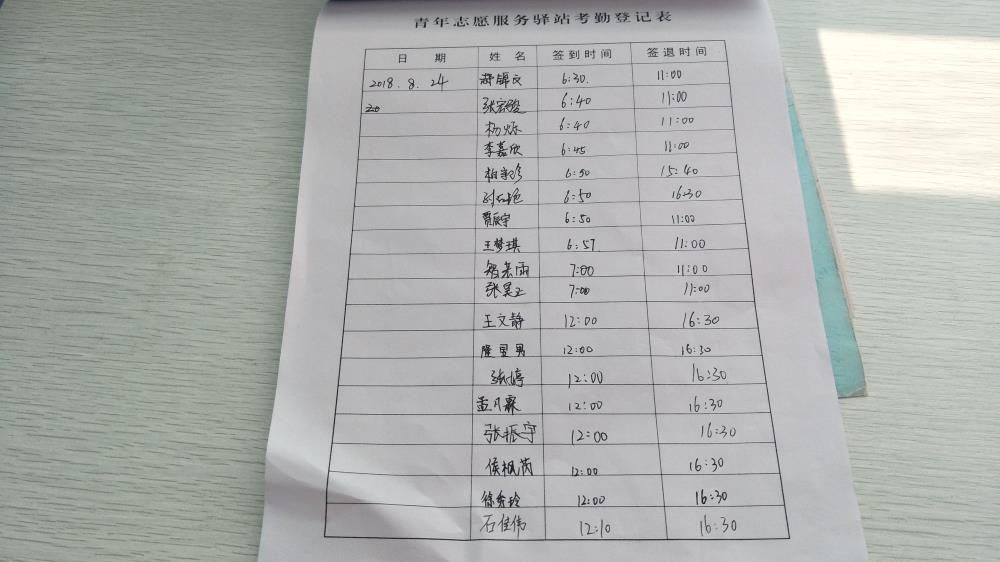 青年志愿服务驿站考勤登记表
日 期 姓 名 签到时间 签退时间
2018.8.24 郝锦文 6:30. 11:00
20 张宏骏 6:40 11:00
杨烁 6:40 11:00
李嘉欣 6:45 11:00
6:50 15:40
6:50 16:30
贾辰宇 6:50 11:00
王梦琪 6:57 11:00
7:00 11:00
张昊 7:00 11:00
王文静 12:00 16:30
隆里男 12:00 16:30
张婷 12:00 16:30
孟凡霖 12:00 16:30
张振宇 12:00 16:30
侯枫芮 12:00 16:30
徐秀玲 12:00 16:30
石佳伟 12:10 16:30